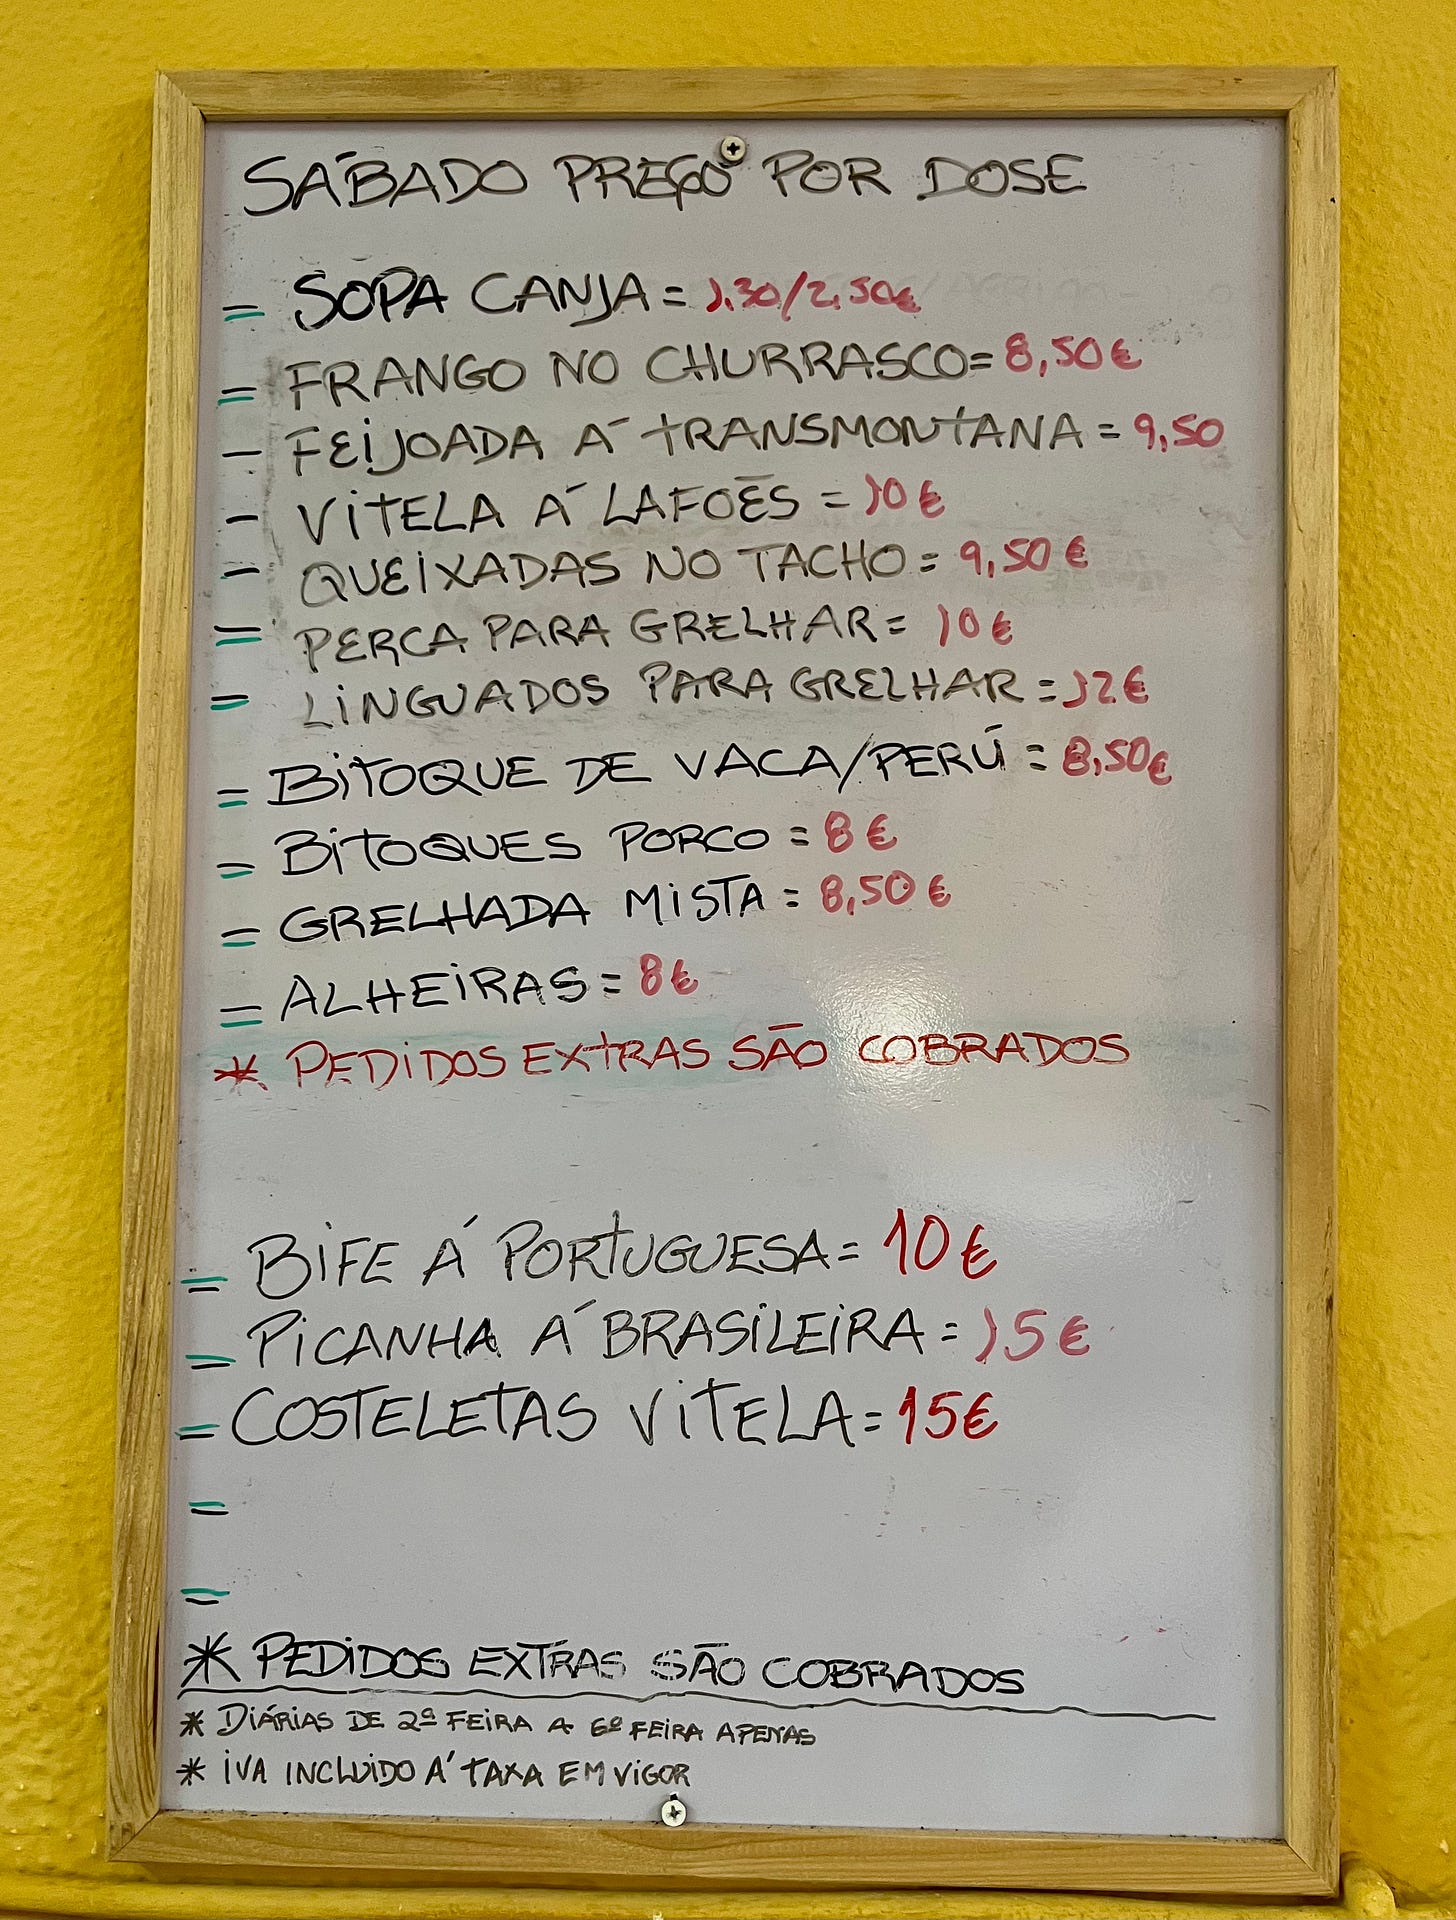 SÁBADO PREÇO POR DOSE
= SOPA CANJA = 1.30/2.50€
= FRANGO NO CHURRASCO = 8,50€
- FEIJOADA Á TRANSMONTANA = 9,50
- VITELA Á LAFOẼS = 10€
- QUEIXADAS NO TACHO = 9,50€
= PERCA PARA GRELHAR = 10€
= LINGUADOS PARA GRELHAR = 12€
= BITOQUE DE VACA/PERÚ = 8,50€
= BITOQUES PORCO = 8€
= GRELHADA MISTA = 8,50€
= ALHEIRAS = 8€
* PEDIDOS EXTRAS SÃO COBRADOS
= BIFE Á PORTUGUESA = 10€
= PICANHA Á BRASILEIRA = 15€
= COSTELETAS VITELA = 15€
=
=
* PEDIDOS EXTRAS SÃO COBRADOS
* DIÁRIAS DE 2ª FEIRA A 6ª FEIRA APENAS
* IVA INCLUIDO Á TAXA EM VIGOR